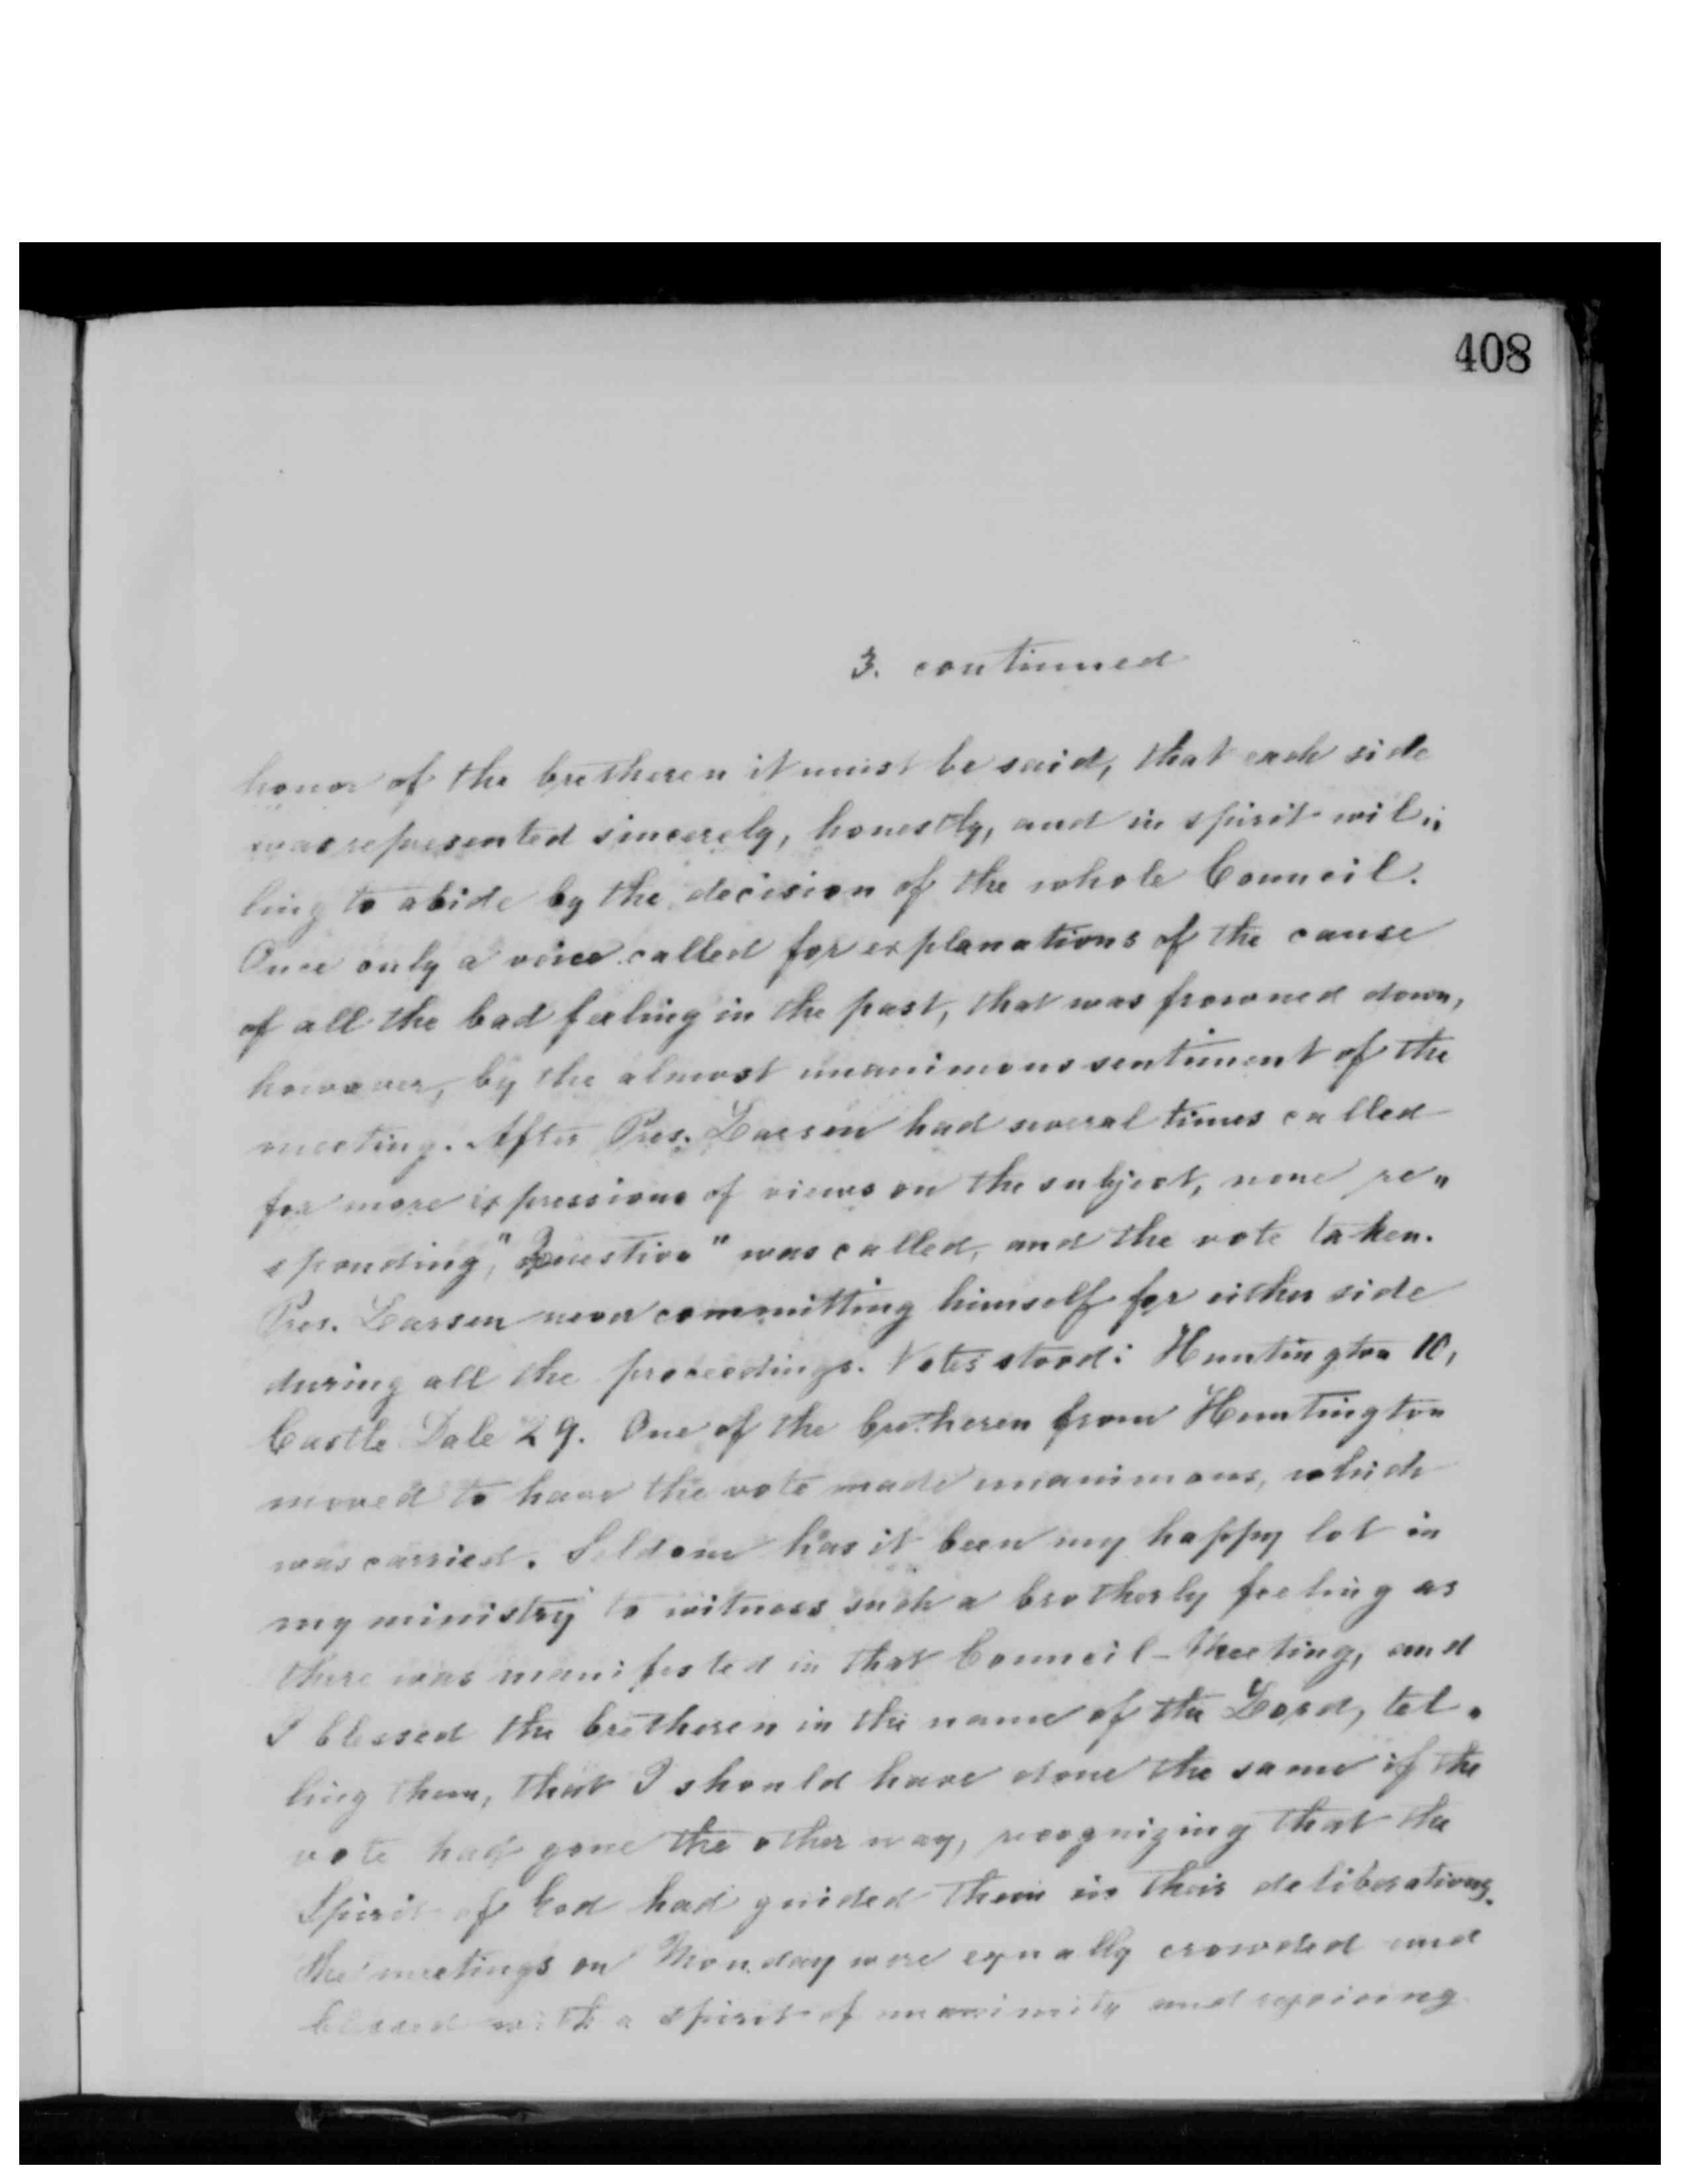 408
3. continued
honor of the bretheren it must be said, that each side
was represented sincerely, honestly, and in spirit wil„
ling to abide by the decision of the whole Council.
Once only a voice called for explanations of the cause
of all the bad feeling in the past, that was frowned down,
however, by the almost unanimous sentiment of the
meeting. After Pres. Larsen had several times called
for more expressions of views on the subject, none re„
sponding, "Question" was called, and the vote taken.
Pres. Larsen never committing himself for either side
during all the proceedings. Votes stood: Huntington 10,
Castle Dale 29. One of the bretheren from Huntington
moved to have the vote made unanimous, which
was carried. Seldom has it been my happy lot in
my ministry to witness such a brotherly feeling as
there was manifested in that Council-Meeting, and
I blessed the bretheren in the name of the Lord, tel„
ling them, that I should have done the same if the
vote had gone the other way, recognizing that the
Spirit of God had guided them in their deliberations.
The meetings on Monday were equally crowded and
blessed with a spirit of unanimity and rejoicing